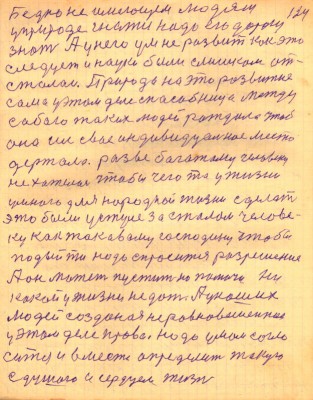 Бедно не имеющем людям 124
у природе
знат А у него ум не развит как это
следует и науки были слишком от-
стали. Природа на это развитие
сама у этом деле способница между
собою таких людей рождала чтоб
она си свае индивидуальное место
держала. разве богатому человеку
не хотелося чтобы чего то у жизни
умного для народной жизни сделат
это были у стуле за столом челове-
ку как таковому господину чтобы
подойти надо спросится разрешение
А он может пустит но помочи ни
какой у жизни не даст. А у наших
людей созданая не равновешенная
у этом деле права. надо умом согло
сится и вместе определит такую
с душою и сердцем жизн